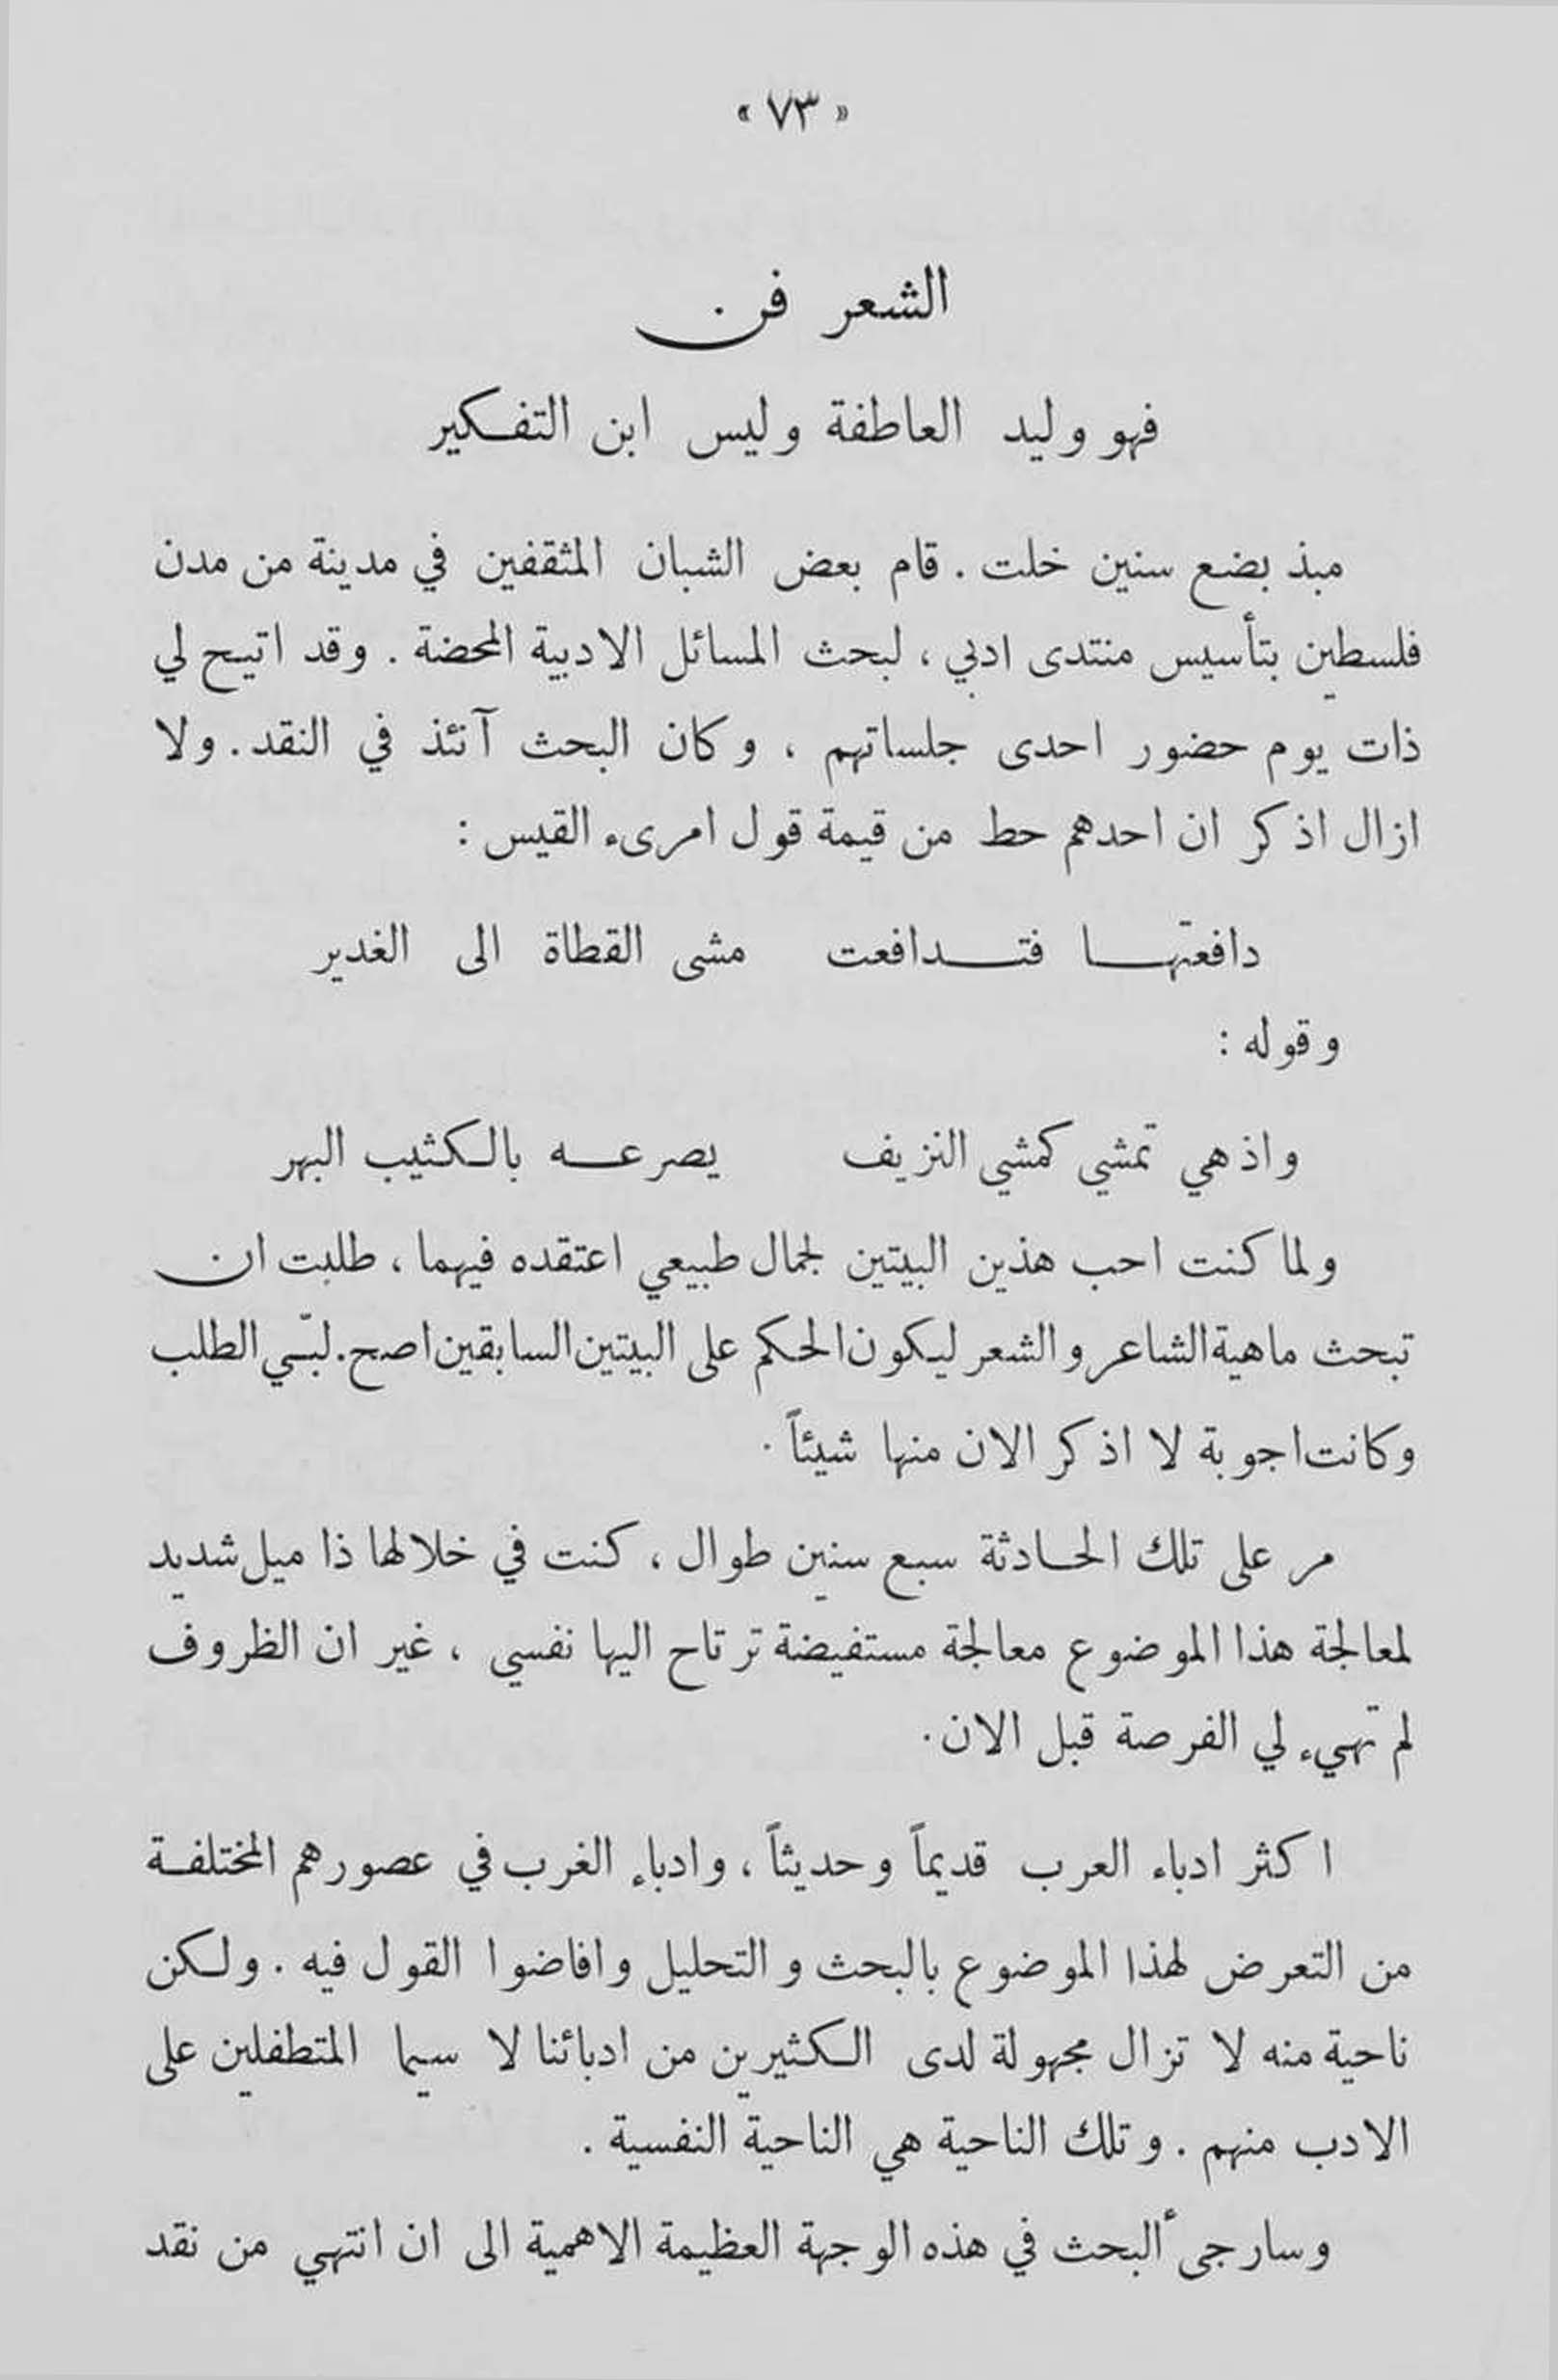 « ٧٣ »
الشعر فن
فهو وليد العاطفة وليس ابن التفكير
مبذ بضع سنين خلت . قام بعض الشبان المثقفين في مدينة من مدن
فلسطين بتأسيس منتدى ادبي ، لبحث المسائل الادبية المحضة . وقد اتيح لي
ذات يوم حضور احدى جلساتهم ، وكان البحث آنئذ في النقد . ولا
ازال اذكر ان احدهم حط من قيمة قول امرىء القيس :
دافعتها فتدافعت مشى القطاة الى الغدير
وقوله :
واذ هي تمشي كمشي النزيف يصرعه بالكثيب البهر
ولما كنت احب هذين البيتين لجمال طبيعي اعتقده فيهما ، طلبت ان
تبحث ماهية الشاعر والشعر ليكون الحكم على البيتين السابقين اصح . لبّي الطلب
وكانت اجوبة لا اذكر الان منها شيئاً .
مر على تلك الحادثة سبع سنين طوال ، كنت في خلالها ذا ميل شديد
لمعالجة هذا الموضوع معالجة مستفيضة ترتاح اليها نفسي ، غير ان الظروف
لم تهيء لي الفرصة قبل الان .
اكثر ادباء العرب قديماً وحديثاً ، وادباء الغرب في عصورهم المختلفة
من التعرض لهذا الموضوع بالبحث والتحليل وافاضوا القول فيه . ولكن
ناحية منه لا تزال مجهولة لدى الكثيرين من ادبائنا لا سيما المتطفلين على
الادب منهم . وتلك الناحية هي الناحية النفسية .
وسارجىٔ البحث في هذه الوجهة العظيمة الاهمية الى ان انتهي من نقد